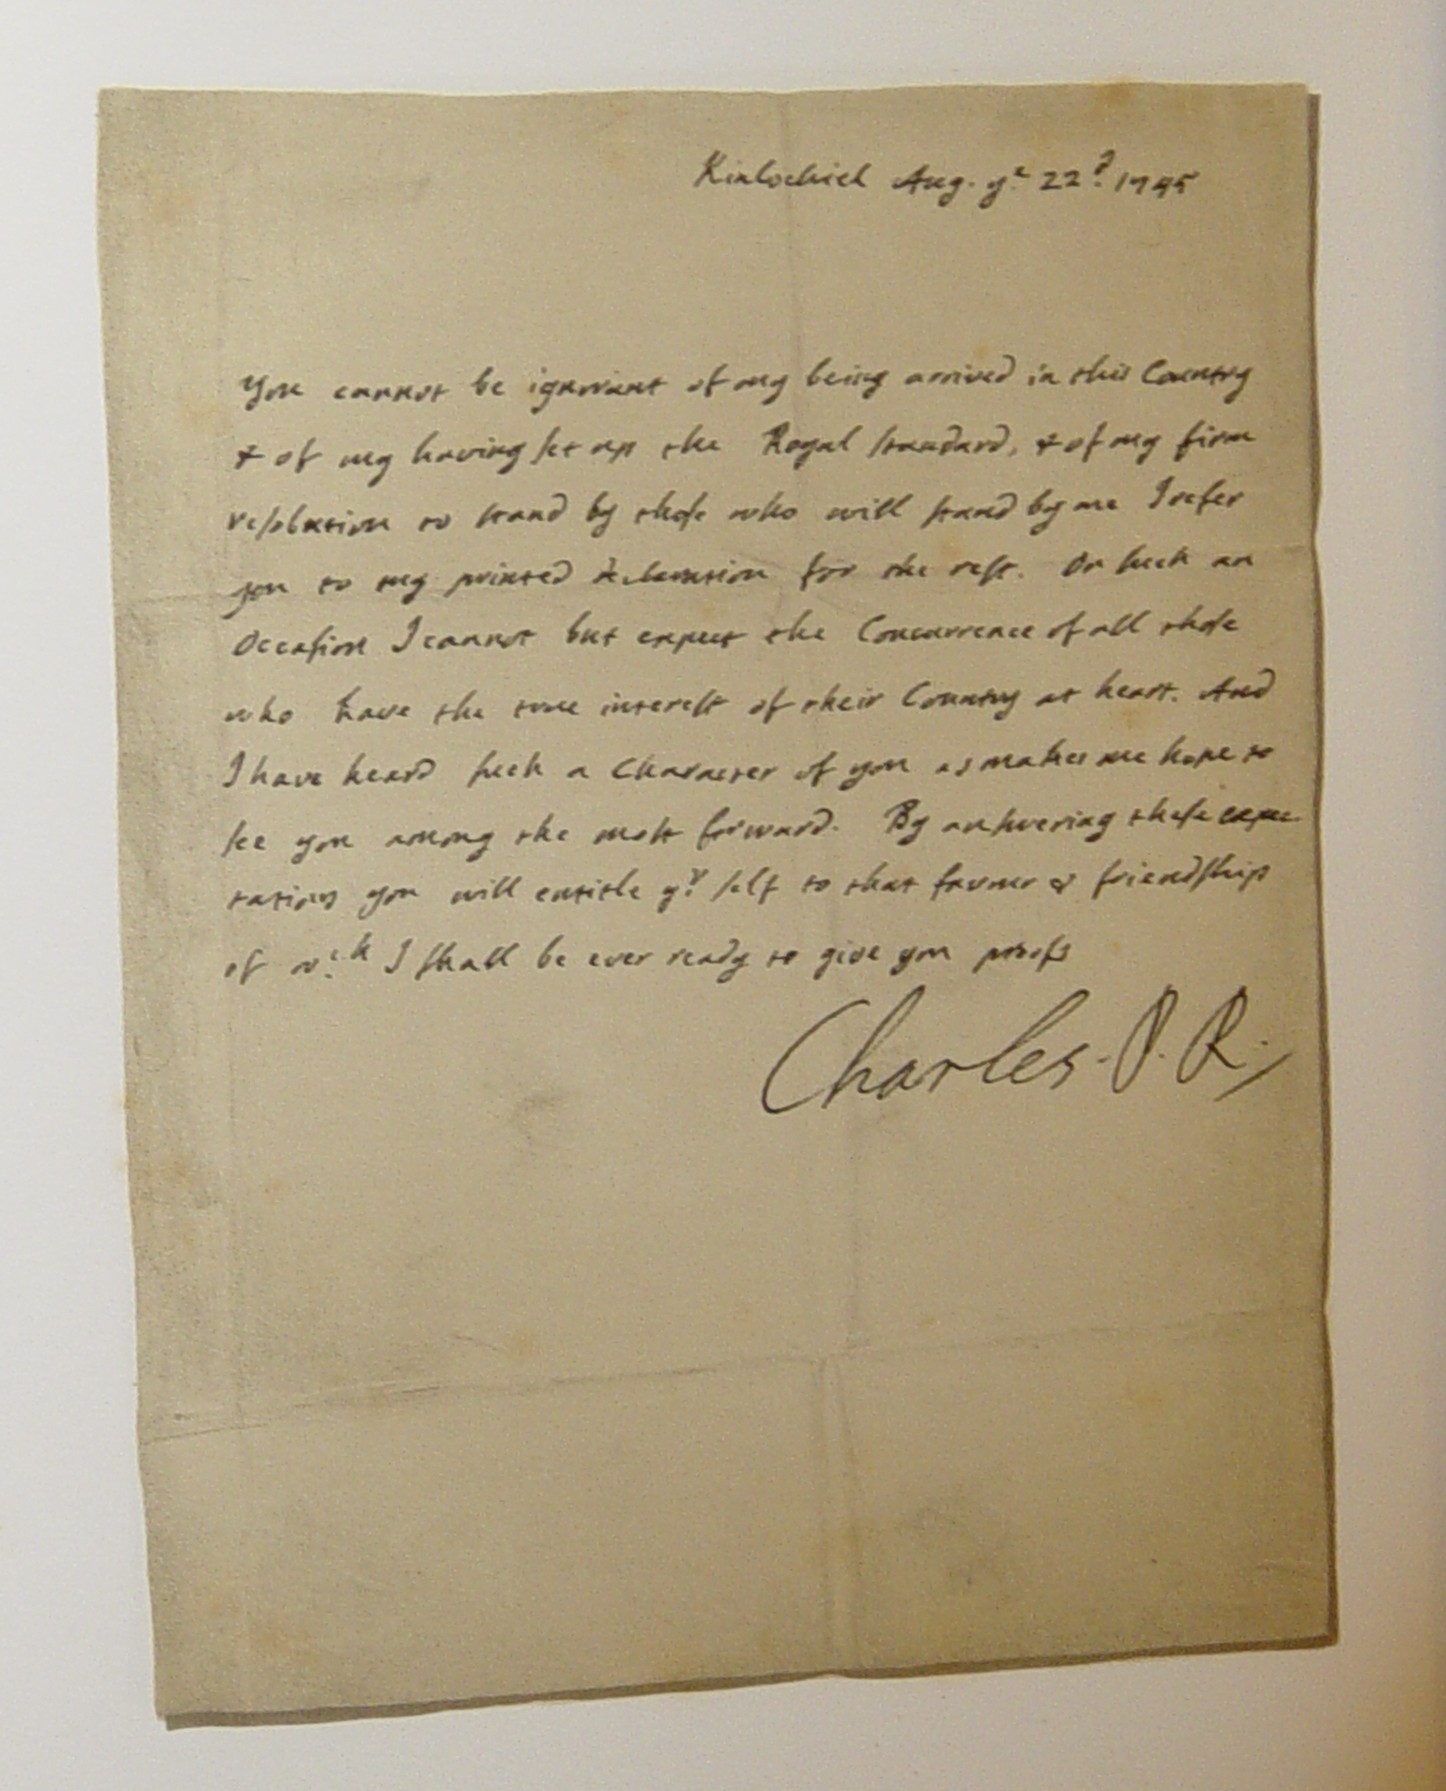 Kinlochiel Aug. ye. 22d. 1745
You cannot be ignorant of my being arrived in this Country
& of my having set up the Royal standard, & of my firm
resolution to stand by those who will stand by me I refer
you to my printed declaration for the rest. On such an
Occasion I cannot but expect the Concurrence of all those
who have the true interest of their Country at heart. And
I have heard such a Character of you as makes me hope to
see you among the most forward. By answering these expec
tations you will entitle yr. self to that favour & friendship
of wch. I shall be ever ready to give you proofs
Charles. P. R.